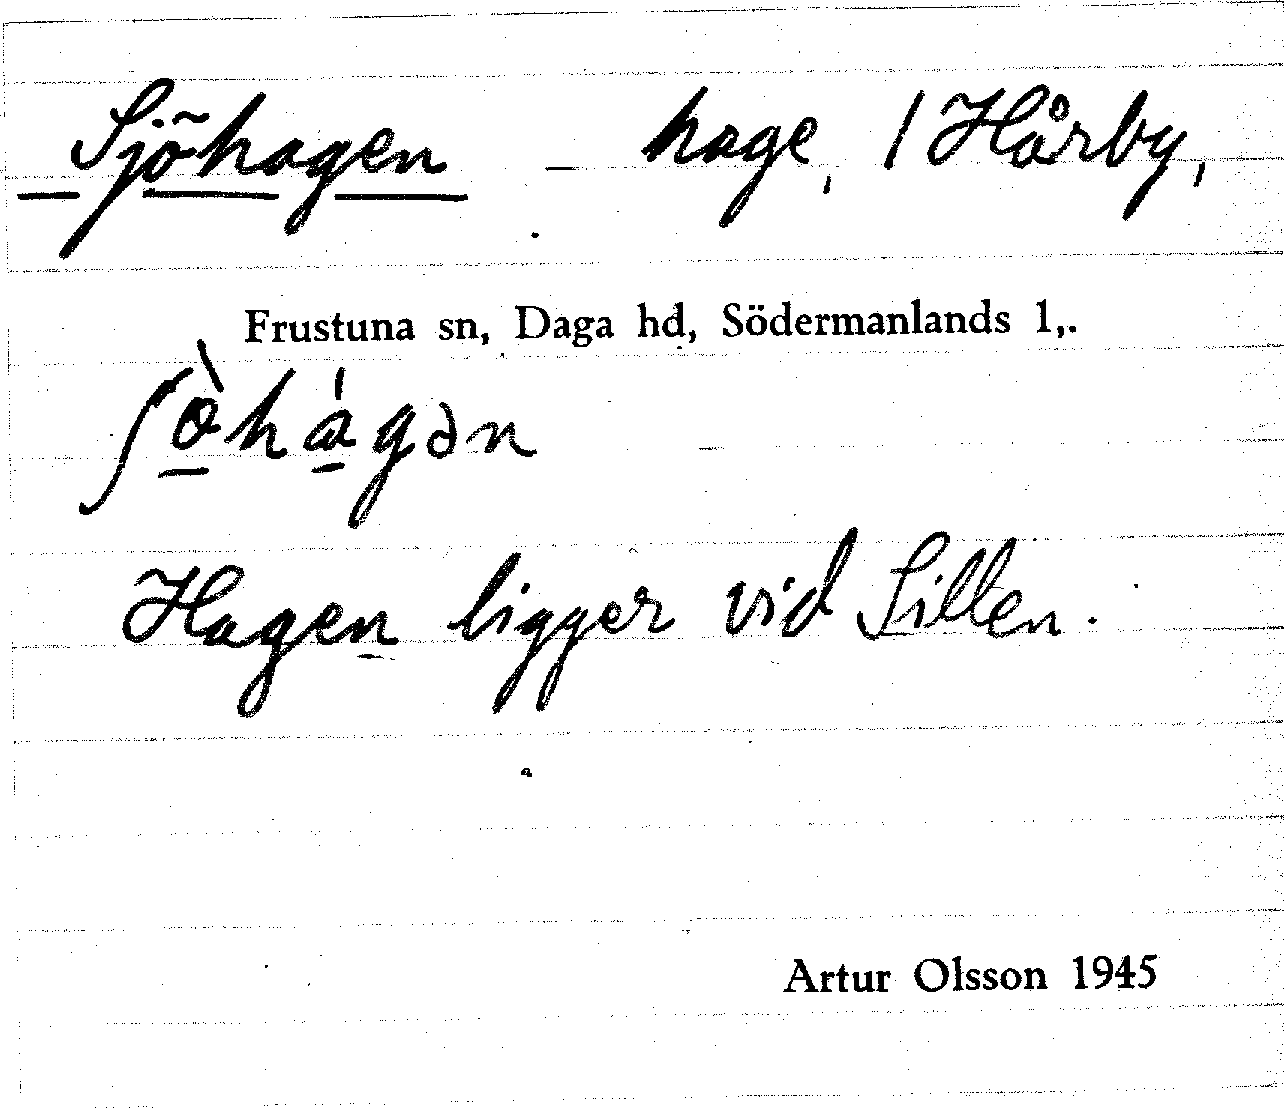 Sjöhagen – hage, / Hårby,
Frustuna sn, Daga hd, Södermanlands l,.
ʃö̀hágən
Hagen ligger vid Sillen.
Artur Olsson 1945